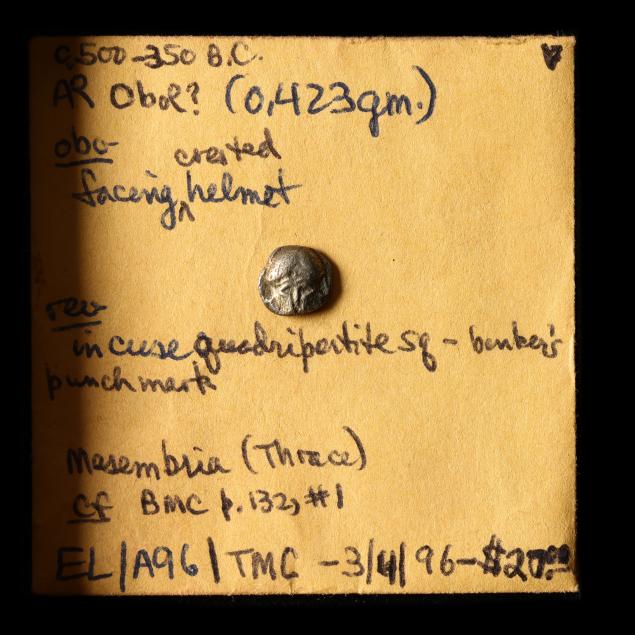 c.500-350 B.C.
AR Obol? (0,423gm.)
obv crested
facing ^ helmet
rev
incuse quadripartite sq - banker's
punch mark
Mesembria (Thrace)
cf BMC p.132, #1
EL/A96/TMC -3/4/96-$20.00